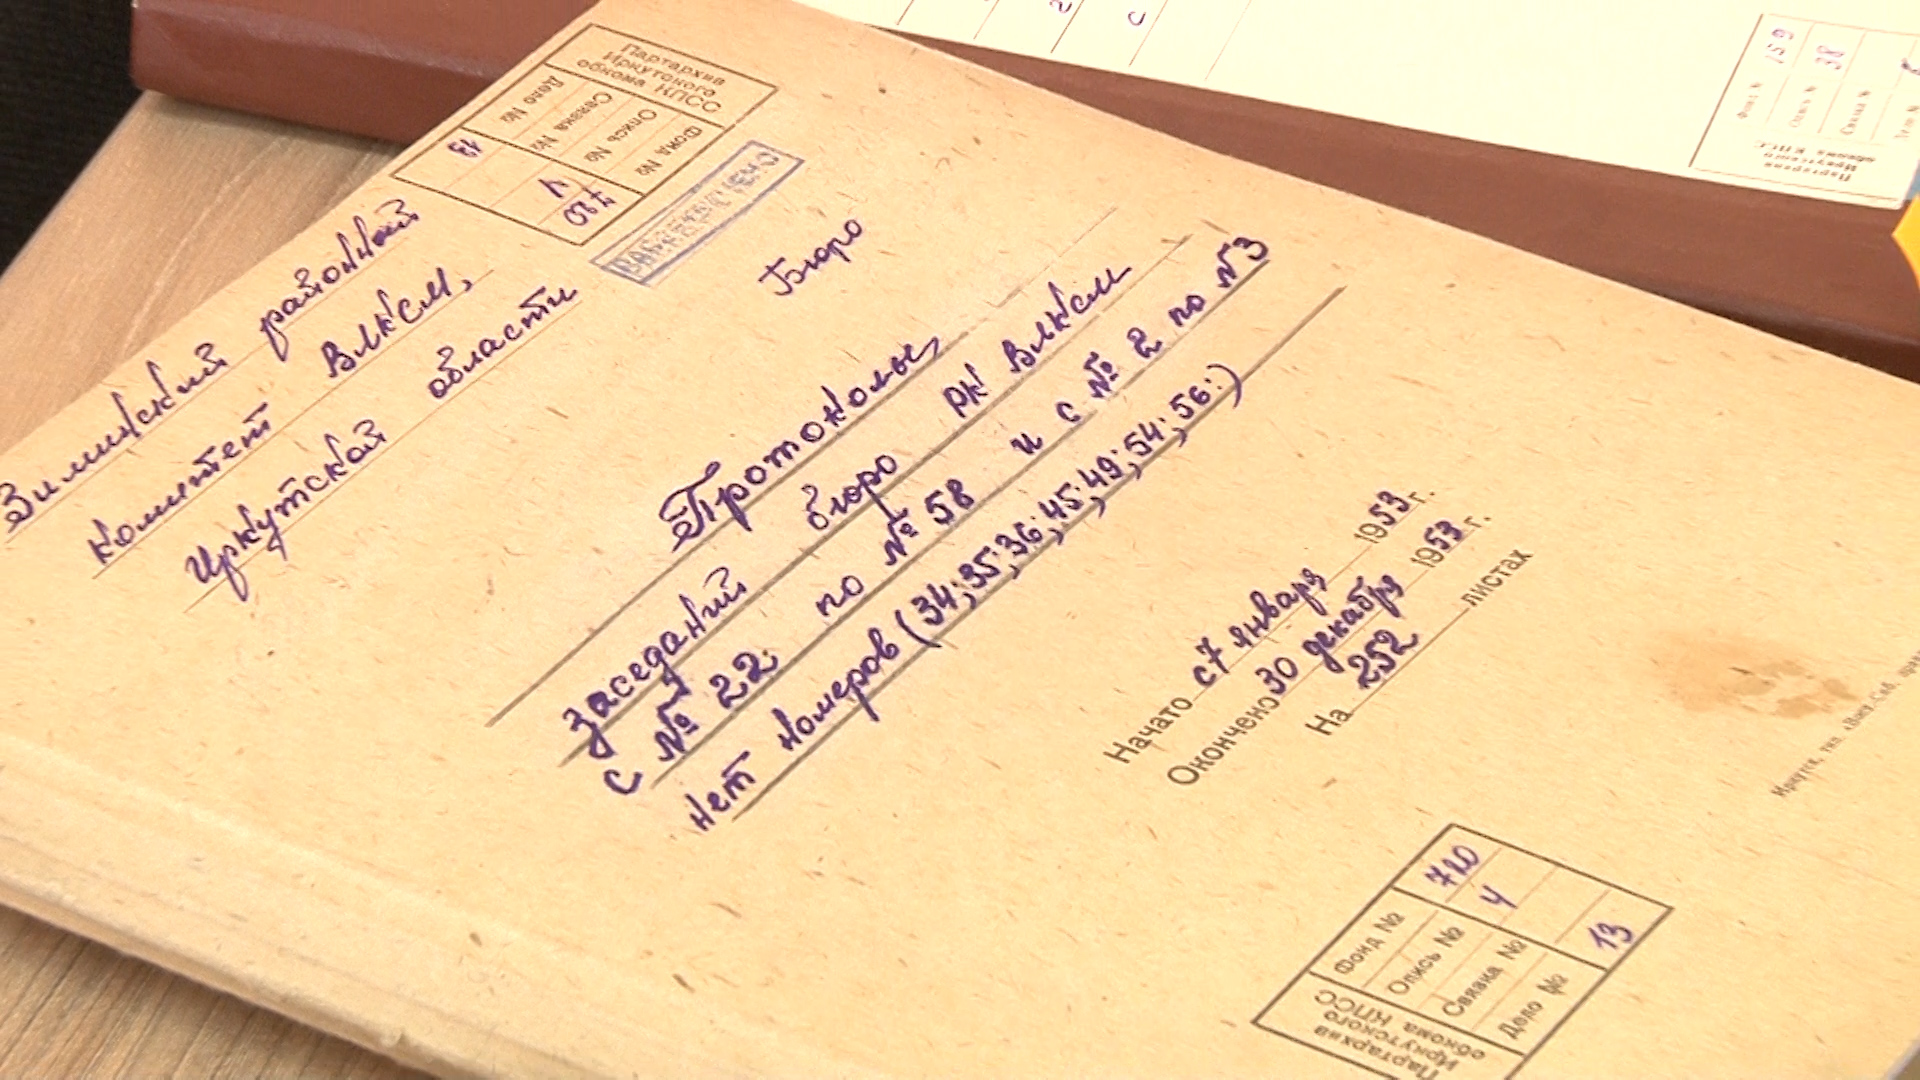 Партархив
Иркутского
обкома КПСС
Фонд № 720
Опись № 4
Связка №
Дело № 13
Зиминский районный
комитет ВЛКСМ,
Иркутской области
Бюро
Протоколы
заседаний бюро РК ВЛКСМ
с № 22 по № 58 и с № 2 по № 3
нет номеров (34; 35; 36; 45; 49; 54; 56.)
Начато с 7 января 1953 г.
Окончено 30 декабря 1953 г.
На 252 листах
Партархив
Иркутского
обкома КПСС
Фонд № 720
Опись № 4
Связка №
Дело № 13
Партархив
Иркутского
обкома КПСС
Фонд № 159
Опись № 38
Связка №
Дело №